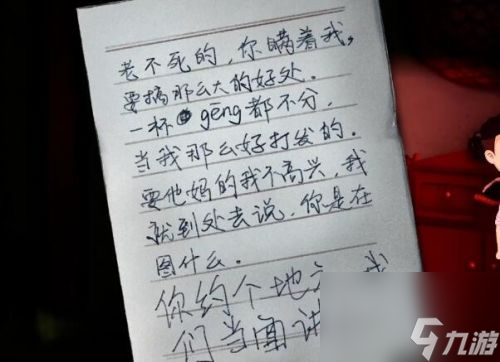 老不死的，你瞒着我，
要搞那么大的好处．
一杯gēng都不分，
当我那么好打发的．
要他妈的我不高兴，我
就到处去说．你是在
图什么．
你约个地方我
们当面讲
九游